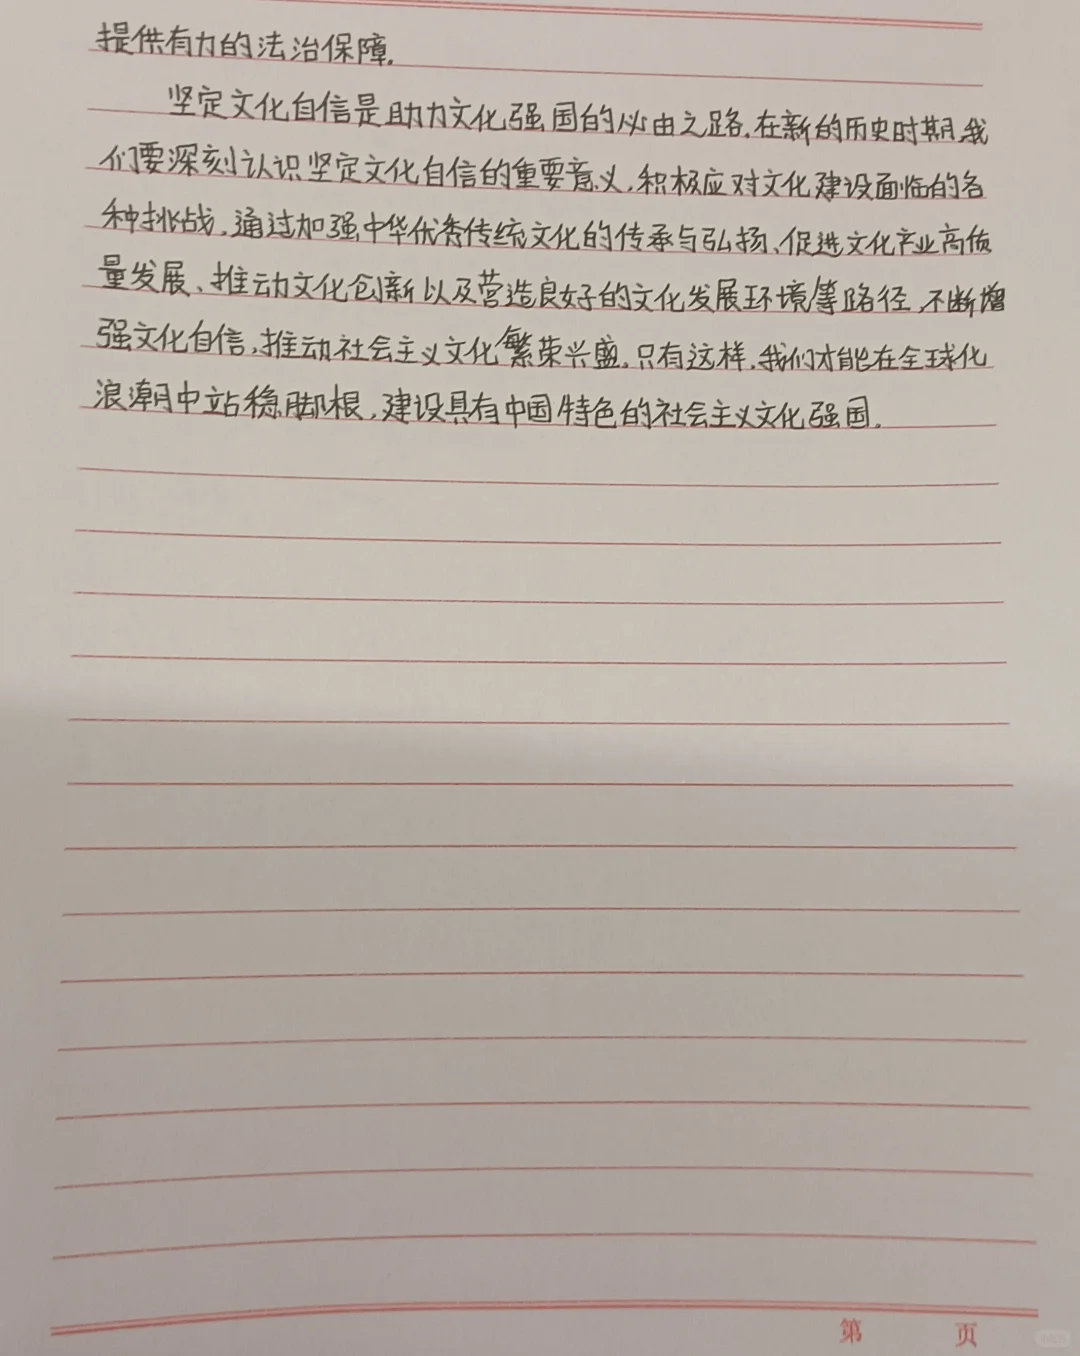 提供有力的法治保障.
坚定文化自信是助力文化强国的必由之路.在新的历史时期,我
们要深刻认识坚定文化自信的重要意义,积极应对文化建设面临的各
种挑战,通过加强中华优秀传统文化的传承与弘扬、促进文化产业高质
量发展、推动文化创新以及营造良好的文化发展环境等路径,不断增
强文化自信,推动社会主义文化繁荣兴盛.只有这样,我们才能在全球化
浪潮中站稳脚根,建设具有中国特色的社会主义文化强国.
第 页